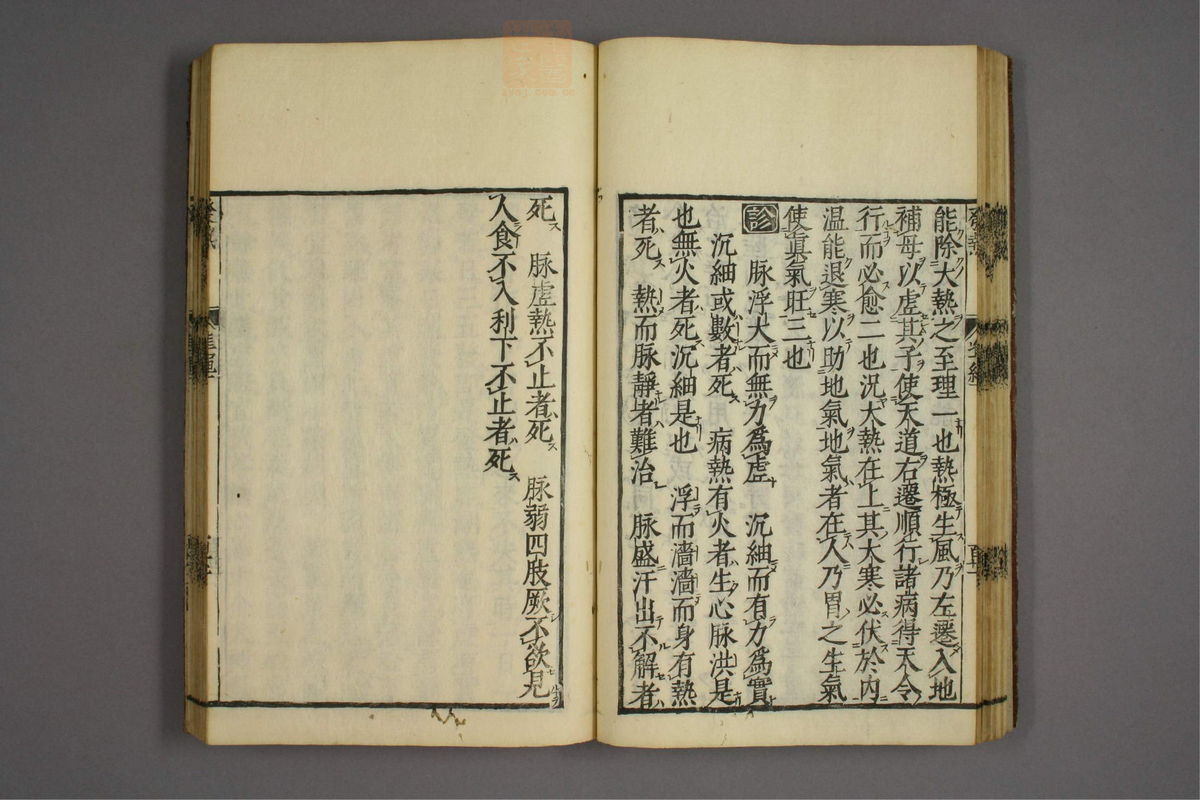 能除大熱之至理一也熱極生風乃左遷入地
補母以虛其子使天道右遷順行諸病得天令
行而必愈二也況大熱在上其大寒必伏於內
温能退寒以助地氣地氣者在人乃胃之生氣
使眞氣旺三也
診　脉浮大而無力爲虛　沉細而有力爲實
沉細或數者死　病熱有火者生心脉洪是
也無火者死沉細是也　浮而濇濇而身有熱
者死　熱而脉靜者難治　脉盛汗出不解者
死　脉虛熱不止者死　脉弱四肢厥不欲見
人食不入利下不止者死